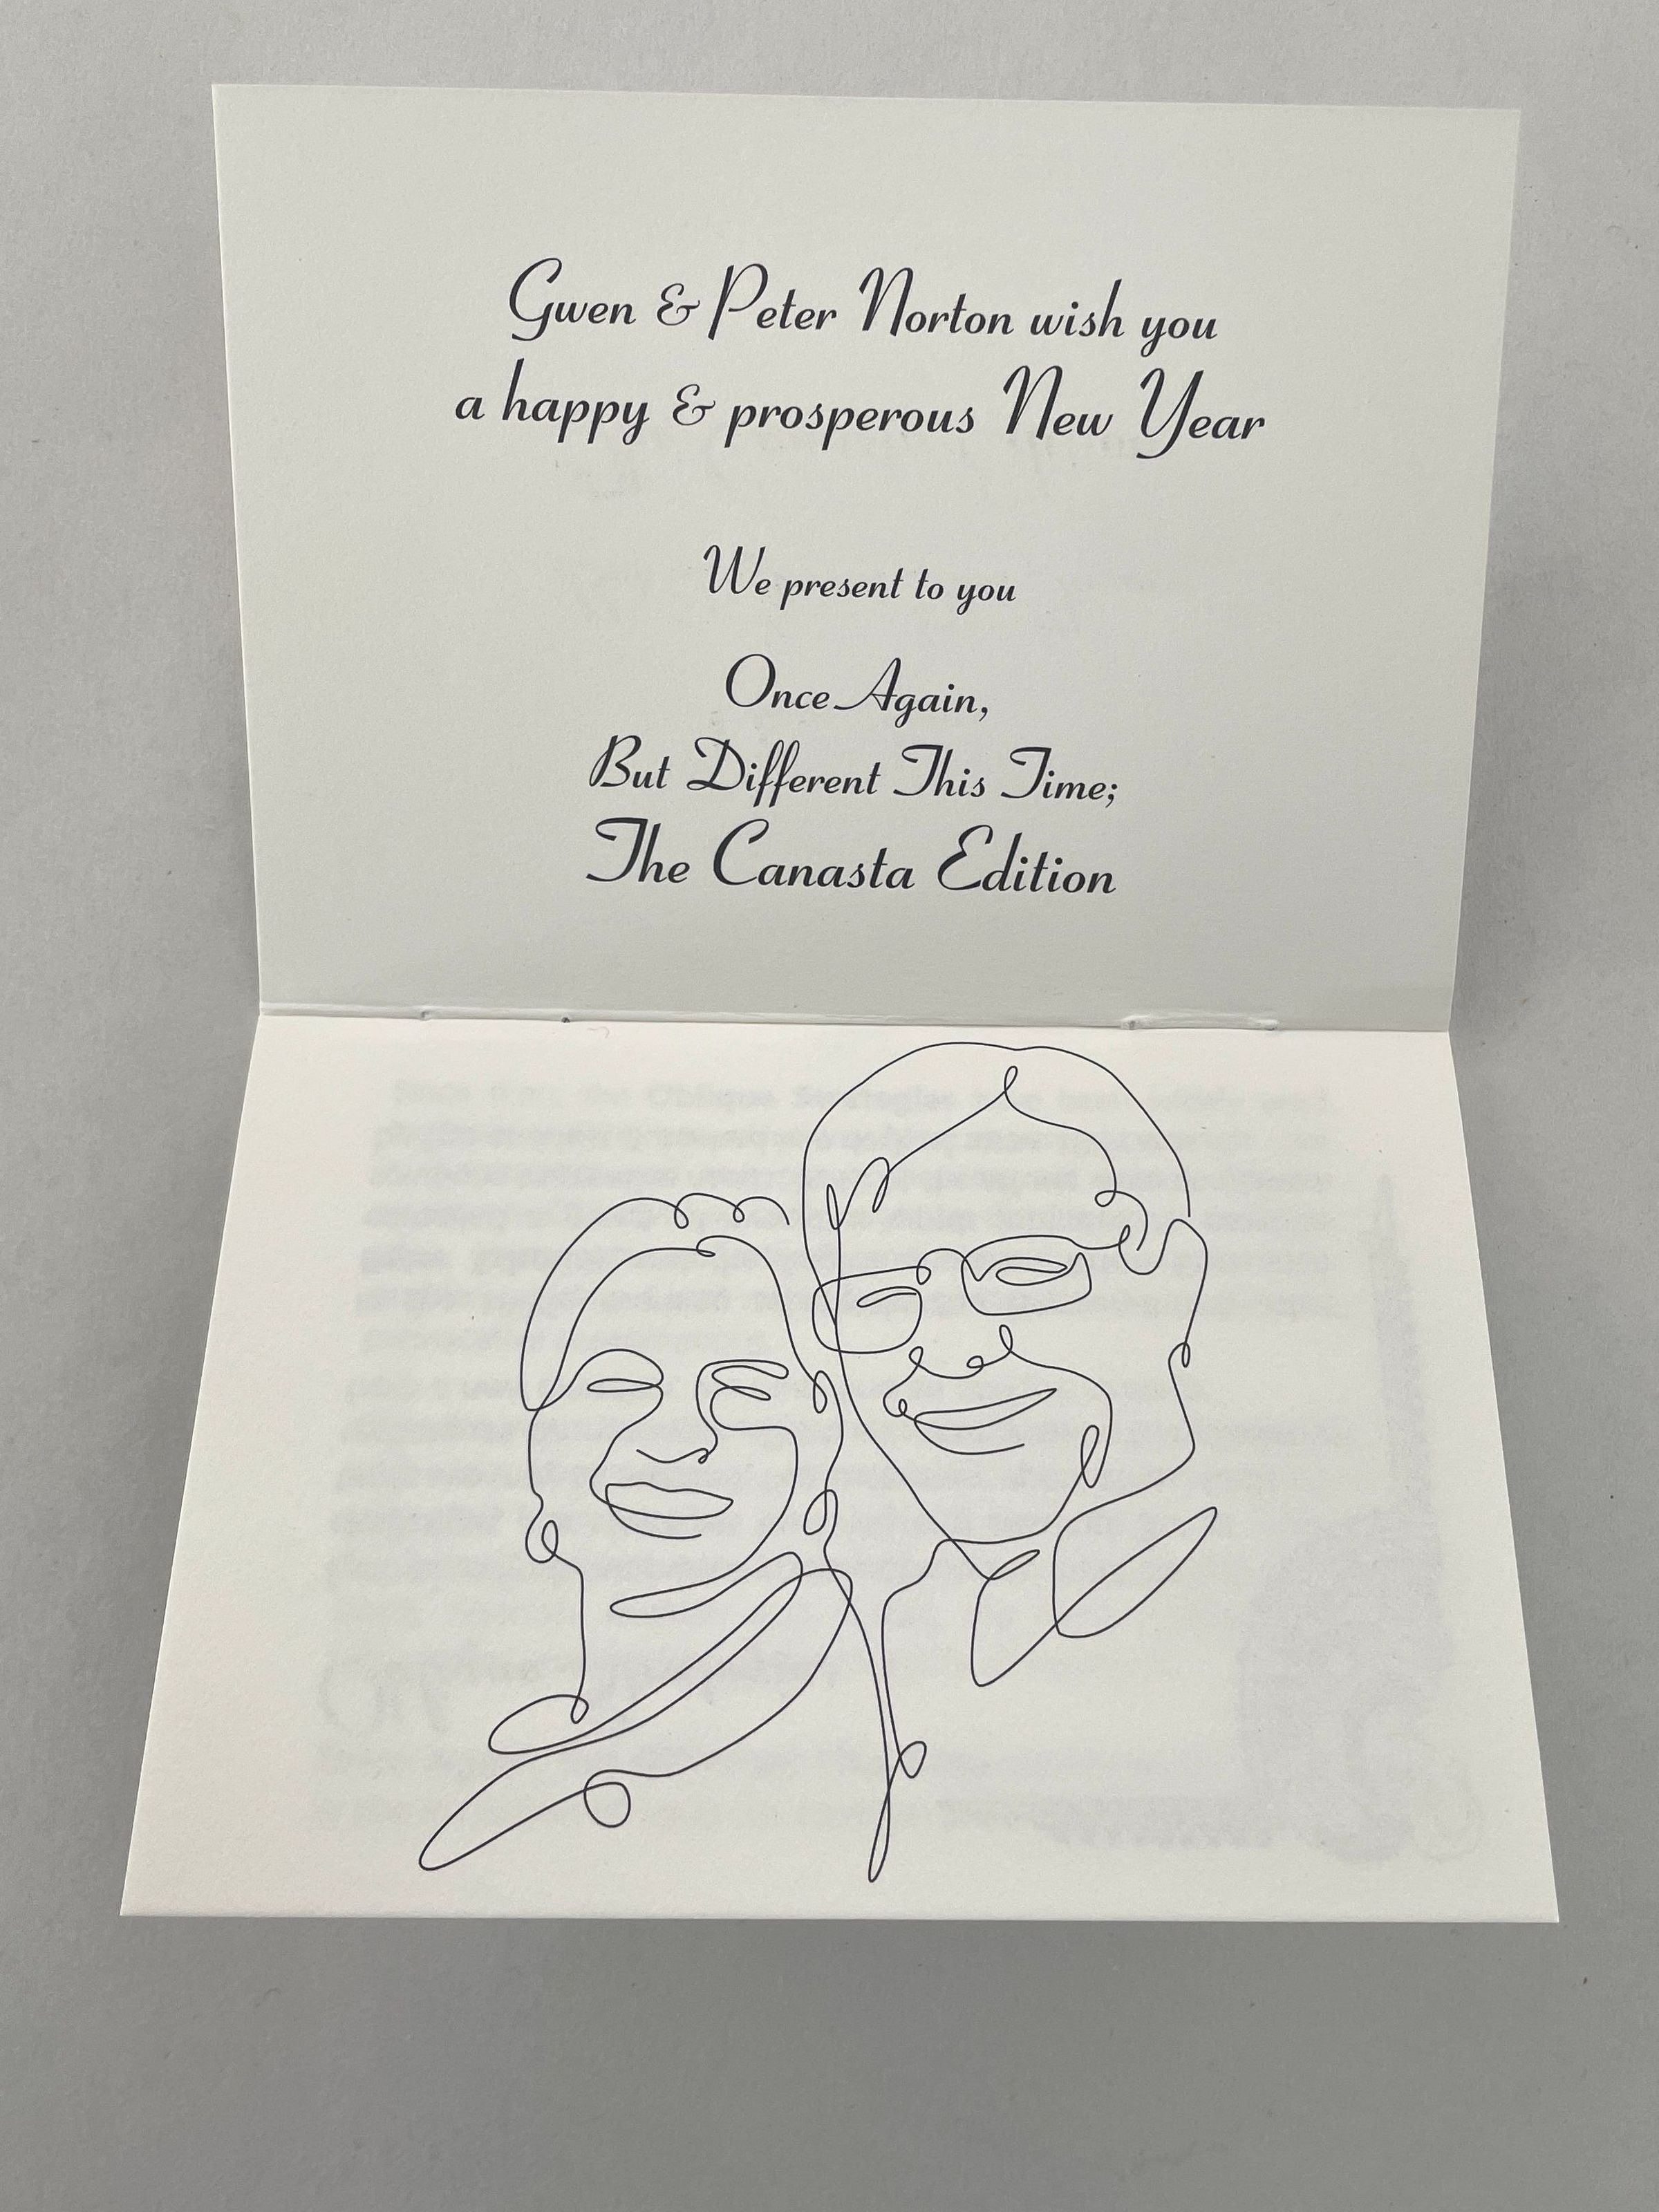 Gwen & Peter Norton wish you
a happy & prosperous New Year
We present to you
Once Again,
But Different This Time;
The Canasta Edition